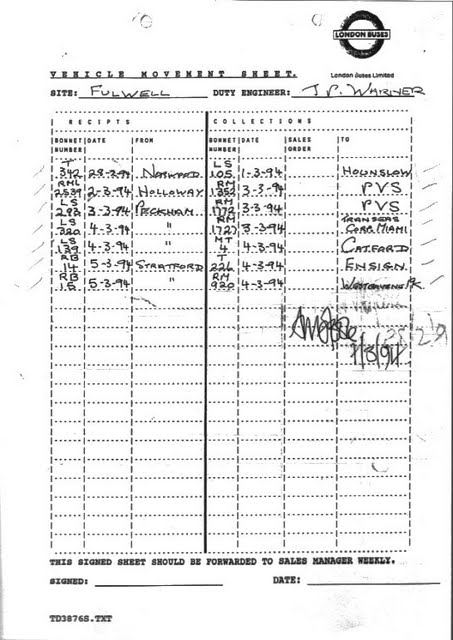 LONDON BUSES
London Buses Limited
VEHICLE MOVEMENT SHEET.
SITE: FULWELL DUTY ENGINEER: J.P. WARINER
RECEIPTS COLLECTIONS
BONNET NUMBER DATE FROM BONNET NUMBER DATE SALES ORDER TO
T 342 28-2-94 NORWOOD LS 105 1-3-94 HOUNSLOW
RML 2539 2-3-94 HOLLOWAY RM 1352 3-3-94 PVS
LS 293 3-3-94 PECKHAM RM 1772 3-3-94 PVS
LS 320 4-3-94 " RM 1727 3-3-94 CORP. MIAMI
LS 139 4-3-94 " MT 4 4-3-94 CATFORD
RB 14 5-3-94 STRATFORD T 226 4-3-94 ENSIGN
RB 15 5-3-94 " RM 920 4-3-94 WESTBOURNE PK
7/3/94
THIS SIGNED SHEET SHOULD BE FORWARDED TO SALES MANAGER WEEKLY.
SIGNED: DATE:
TD3876S.TXT